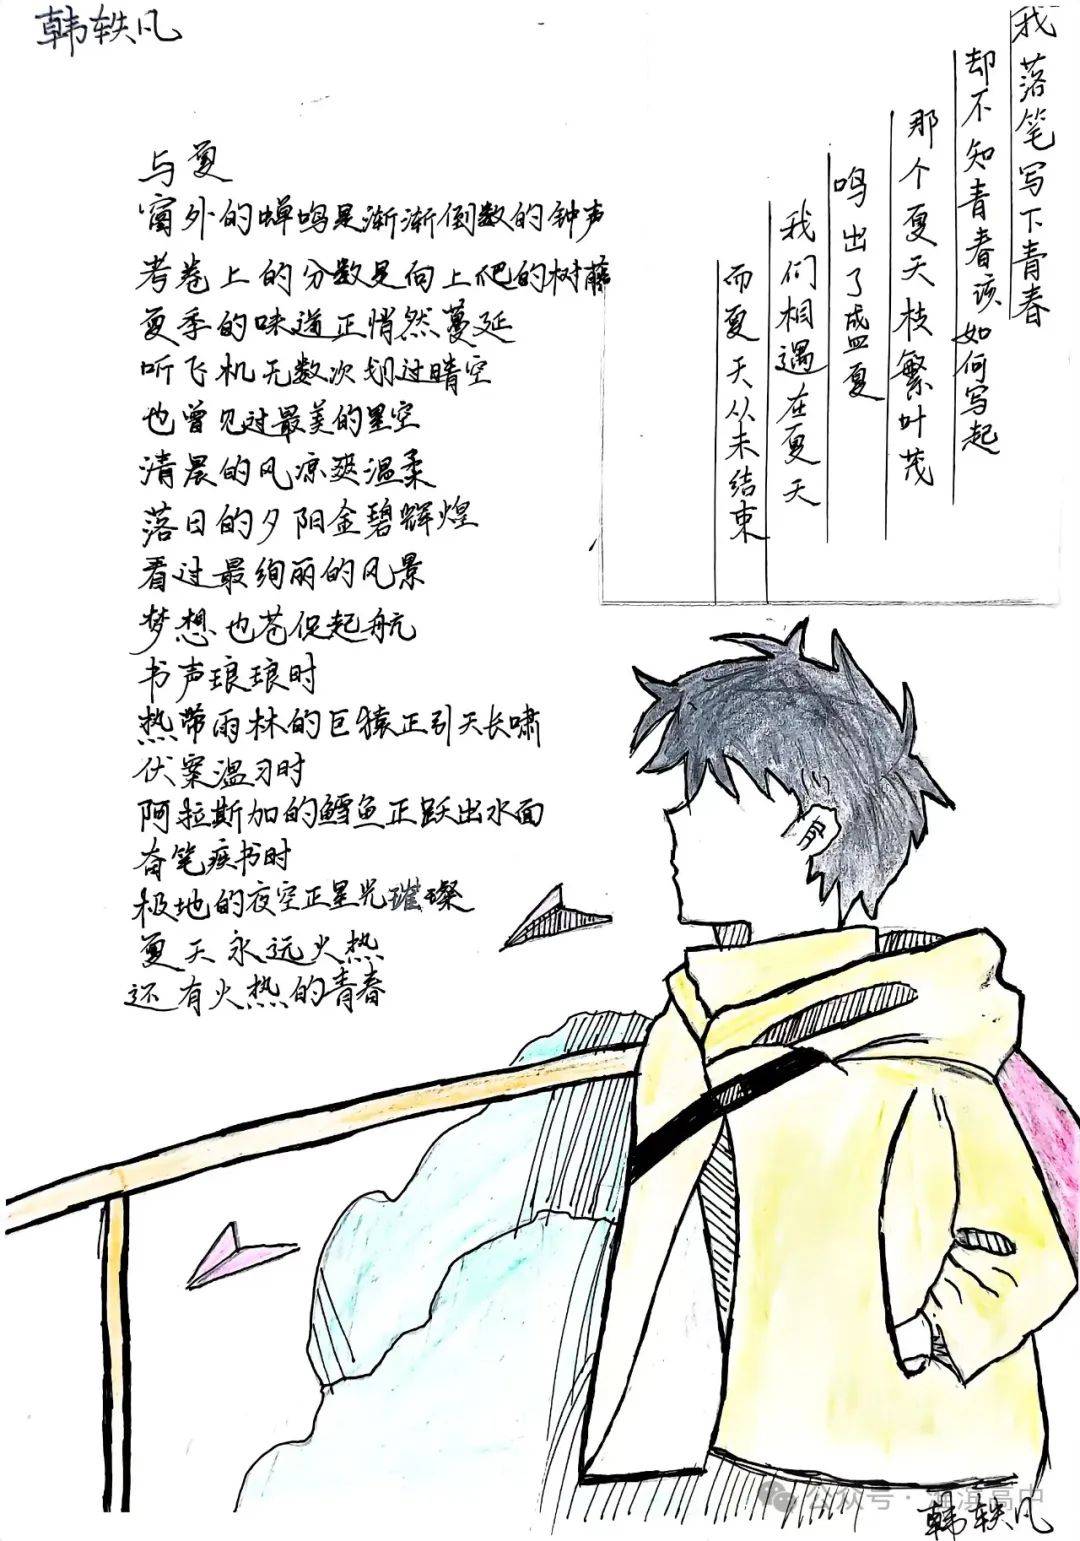 韩轶凡
我落笔写下青春
却不知青春该如何写起
那个夏天枝繁叶茂
鸣出了盛夏
我们相遇在夏天
而夏天从未结束
与夏
窗外的蝉鸣是渐渐倒数的钟声
考卷上的分数是向上爬的树藤
夏季的味道正悄然蔓延
听飞机无数次划过晴空
也曾见过最美的星空
清晨的风凉爽温柔
落日的夕阳金碧辉煌
看过最绚丽的风景
梦想也苍促起航
书声琅琅时
热带雨林的巨猿正引天长啸
伏案温习时
阿拉斯加的鳕鱼正跃出水面
奋笔疾书时
极地的夜空正星光璀璨
夏天永远火热
还有火热的青春
公众号·滨高中
韩轶凡